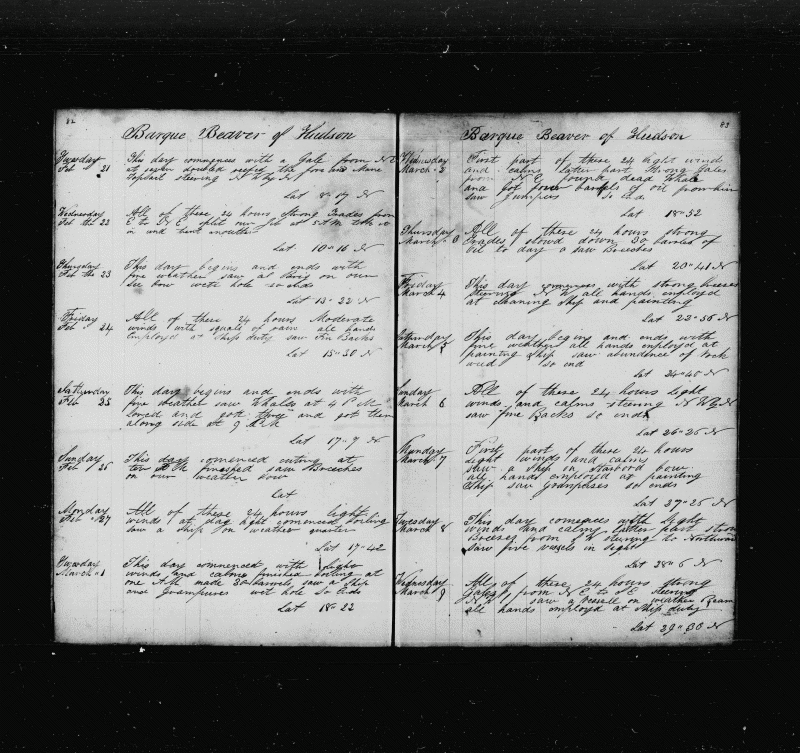 82
Barque Beaver of Hudson
Tuesday Feb 21
This day commences with a Gale from N E
at seven doubled reefed the fore and Mane
Topsail steering N W by N
Lat 8-17 N
Wednesday Feb the 22
All of these 24 hours Strong Trades from
E to N E split our jib at 5 A M took it
in and bent another
Lat 10"16 N
Thursday Feb the 23
This day begins and ends with
fine weather saw a Brig on our
lee bow so ends
Lat 13-22 N
Friday Feb 24
All of these 24 hours Moderate
winds with squals of rain all hands
Employd at Ships duty saw Fin Backs
Lat 15"30 N
Satturday Feb 25
This day begins and ends with
fine weather saw Whales at 4 P M
lowed and gott three and got them
along side at 9 P M
Lat 17"7 N
Sunday Feb 26
This day comenced cuting at
ten P M finished saw Breeches
on our weather bow
Lat
Monday Feb "27
All of these 24 hours light
winds at day light comenced boiling
saw a ship on weather quarter
Lat 17-42
Tuesday March "1
This day commenced with light
winds and calms finished boiling at
one A M made 30 barrels saw a Ship
and Grampuses so Ends
Lat 18"22
83
Barque Beaver of Hudson
Wednesday March 2
First part of these 24 light winds
and calms latter part strong gales
from N E found dead Whale
and got four barrels of oil from him
saw Jumpers so End
Lat 18"52
Thursday March 3
All of these 24 hours strong
Trades stowd down 30 barrels of
oil to day saw Breeches
Lat 20"41 N
Friday March 4
This day commences with strong breeses
steering N W all hands employd
at cleaning ship and painting
Lat 22"56 N
Satturday March 5
This day begins and ends with
fine weather all hands employd at
painting Ship saw abundence of rock
weed so end
Lat 24"40 N
Sunday March 6
All of these 24 hours light
winds and calms steering N W by N
saw fine Backs so ends
Lat 26"26 N
Munday March "7
First part of these 24 hours
light winds and calms
saw a Ship on starbord bow
all hands employd at painting
Ship saw Grampuses so ends
Lat 27"25 N
Tuesday March 8
This day comences with light
winds and calms latter part strong
Breeses from S W stering to Northward
saw five vesels in sight
Lat 28"6 N
Wednesday March 9
All of these 24 hours strong
Gales from N E to S E steering
N saw a vessell on weather Beam
all hands employd at Ship duty
Lat 29"30 N